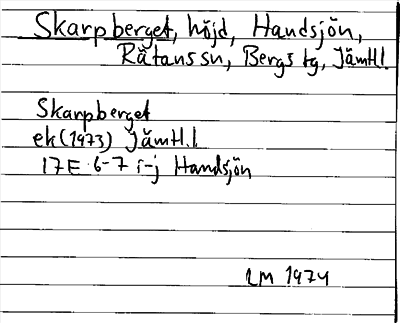 Skarpberget, höjd, Handsjön,
Rätans sn, Bergs tg, Jämtl.l
Skarpberget
ek (1973) Jämtl.l
17E 6-7 i-j Handsjön
LM 1974